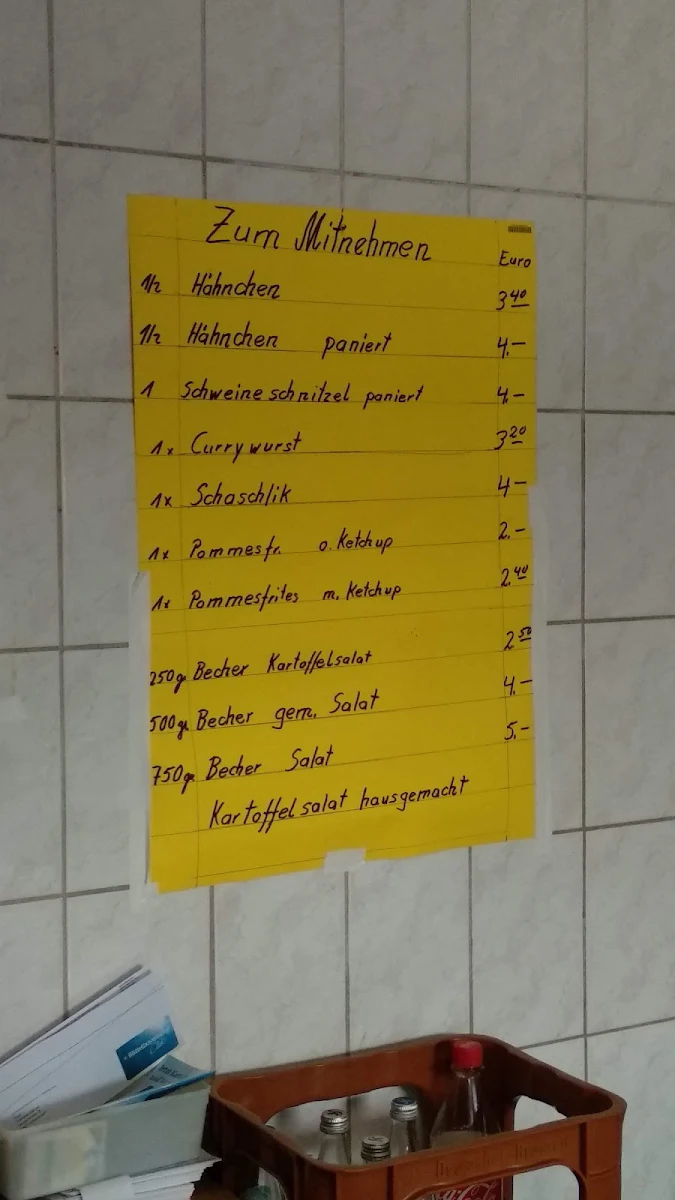 Zum Mitnehmen
Euro
1/2 Hähnchen 3 40
1/2 Hähnchen paniert 4.-
1 Schweineschnitzel paniert 4.-
1x Currywurst 3 20
1x Schaschlik 4-
1x Pommesfr. o. Ketchup 2.-
1x Pommesfrites m. Ketchup 2.40
250g Becher Kartoffelsalat 2 50
500g Becher gem. Salat 4.-
750g Becher Salat 5.-
Kartoffelsalat hausgemacht